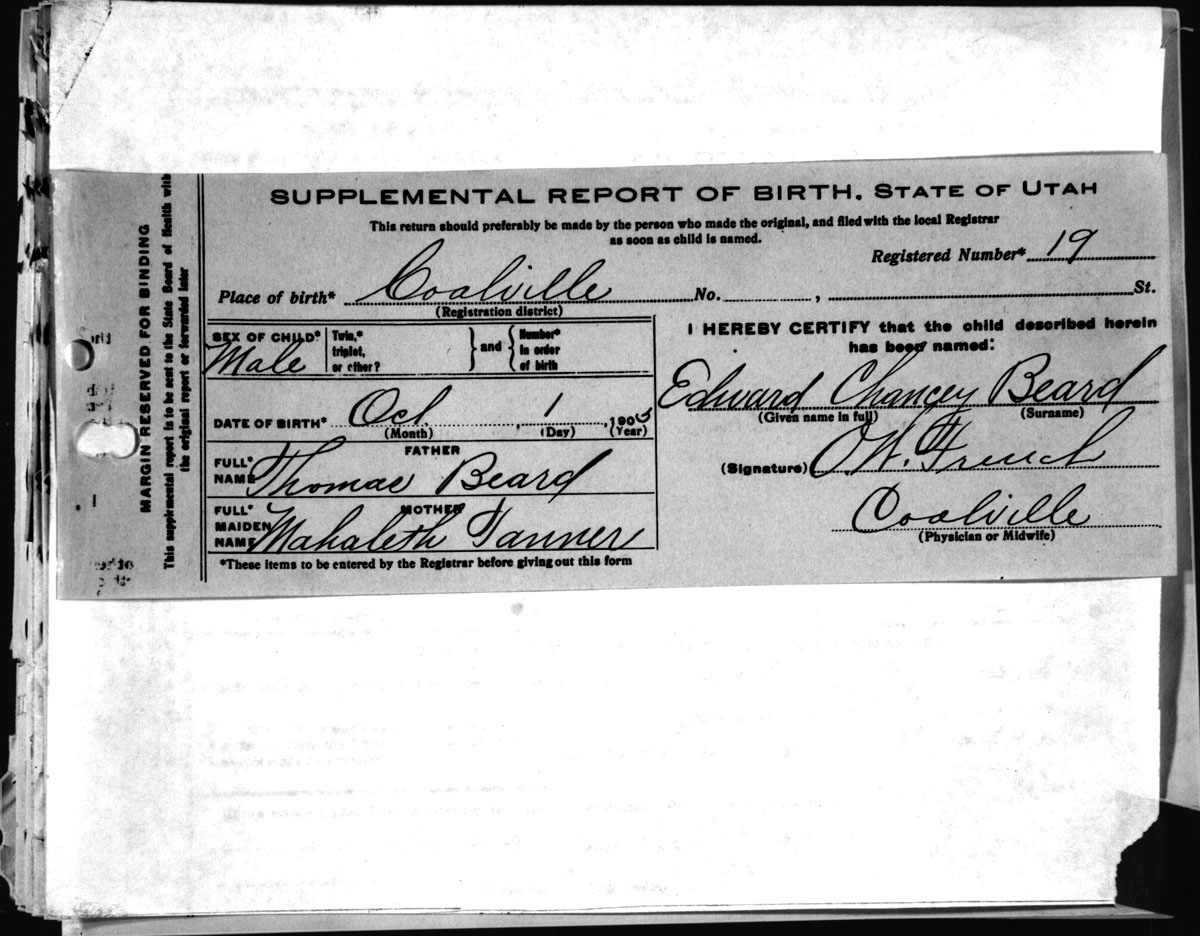 SUPPLEMENTAL REPORT OF BIRTH. STATE OF UTAH
This return should preferably be made by the person who made the original, and filed with the local Registrar
as soon as child is named.
Registered Number* 19
Place of birth* Coalville No. , St.
(Registration district)
SEX OF CHILD*
Male
Twin,*
triplet,
or other?
} and {
Number*
in order
of birth
DATE OF BIRTH* Oct. 1, 1905
(Month) (Day) (Year)
FATHER
FULL*
NAME Thomas Beard
MOTHER
FULL*
MAIDEN
NAME Mahaleth Tanner
*These items to be entered by the Registrar before giving out this form
I HEREBY CERTIFY that the child described herein
has been named:
Edward Chancey Beard
(Given name in full) (Surname)
(Signature) O.W. French
Coalville
(Physician or Midwife)
MARGIN RESERVED FOR BINDING
This supplemental report is to be sent to the State Board of Health with
the original report or forwarded later